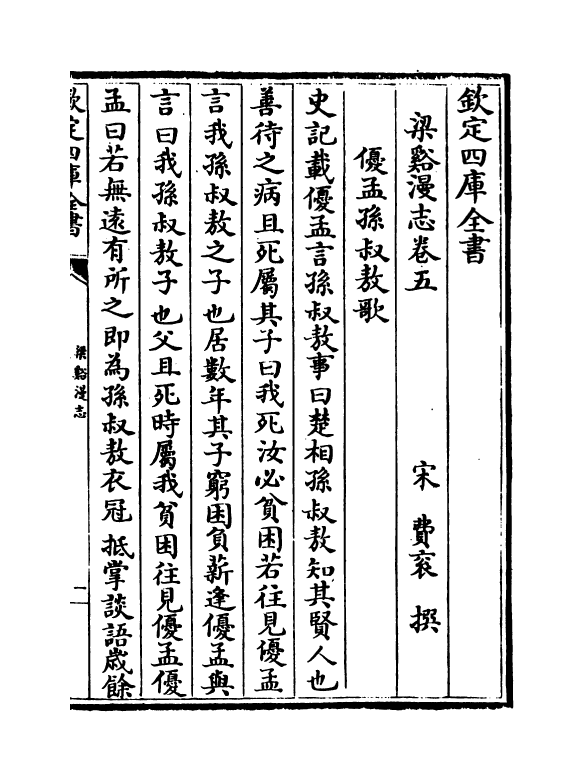 欽定四庫全書
梁谿漫志卷五　宋　費袞　撰
優孟孫叔敖歌
史記載優孟言孫叔敖事曰楚相孫叔敖知其賢人也
善待之病且死屬其子曰我死汝必貧困若往見優孟
言我孫叔敖之子也居數年其子窮困負薪逢優孟與
言曰我孫叔敖子也父且死時屬我貧困往見優孟優
孟曰若無遠有所之即為孫叔敖衣冠抵掌談語歲餘
欽定四庫全書
梁谿漫志
一